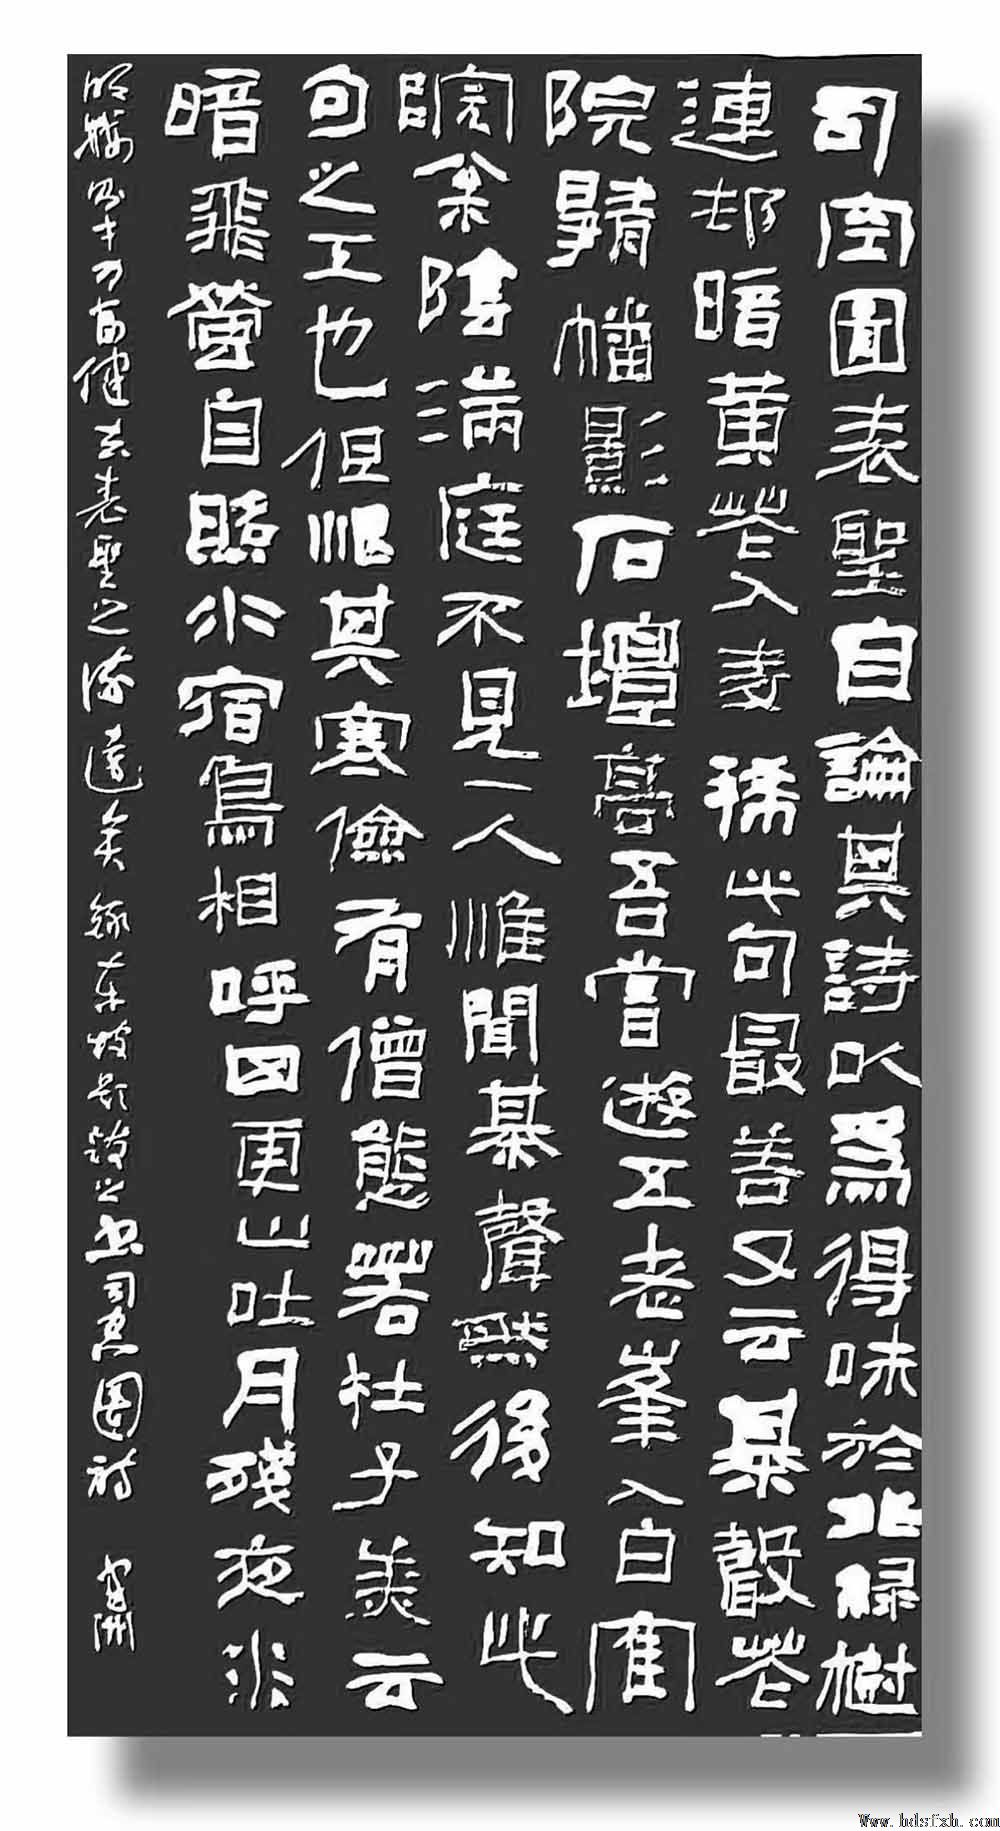 司空圖表聖自論其詩以為得味於北綠樹
連邨暗黃花入麥稀此句最善又云棊聲花
院閉幡影石壇高吾嘗遊五老峯入白鶴
院松陰滿庭不見一人惟聞棊聲然後知此
句之工也但恨其寒儉有僧態若杜子美云
暗飛螢自照水宿鳥相呼四更山吐月殘夜水
明樓則才力富健去表聖之流遠矣 錄東坡題跋之書司空圖詩
Www.hdsfxh.com